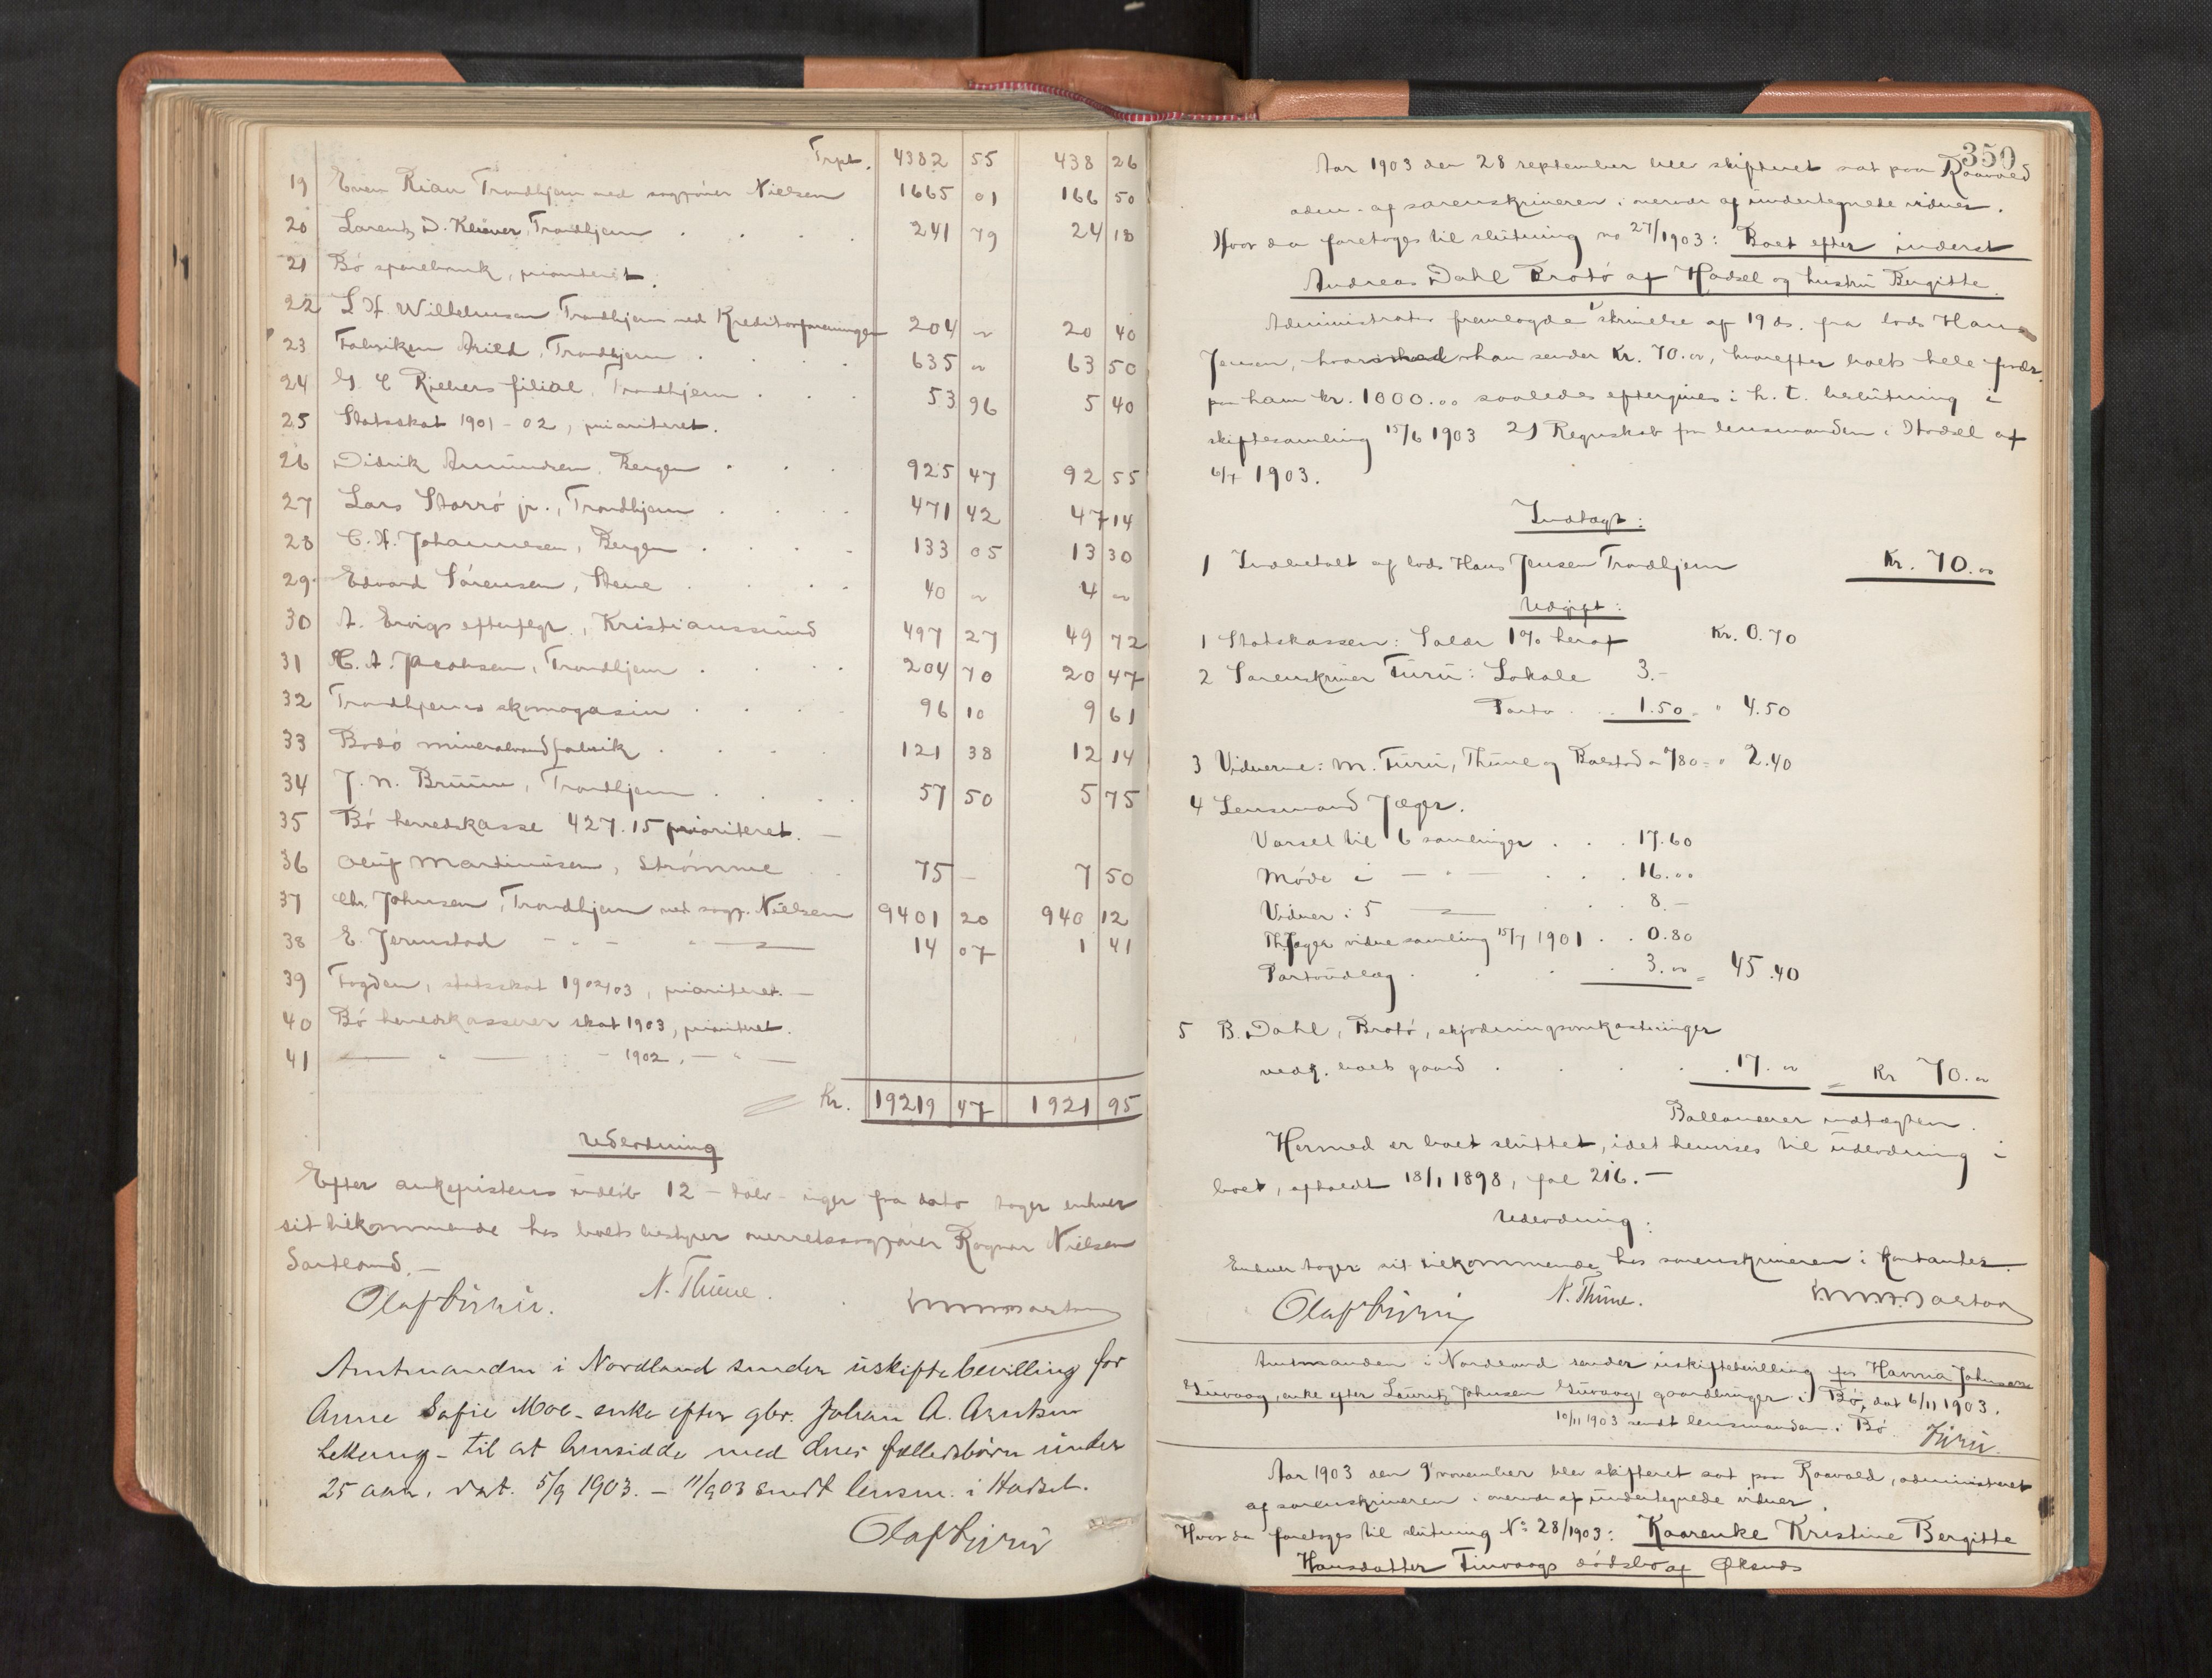 Trpt. 4382 55 438 26
19 Even Rian Trondhjem ved sagfører Nielsen 1665 01 166 50
20 Larentz D. Klüver, Trondhjem . . . . 241 79 24 18
21 Bø sparebank, prioriteret.
22 L. H. Wilhelmsen Trondhjem ved Kreditorforeningen 204 " 20 40
23 Fabriken Arild, Trondhjem . . . . 635 " 63 50
24 G. C. Riebers filial, Trondhjem . . . 53 96 5 40
25 Statsskat 1901-02, prioriteret.
26 Didrik Amundsen, Bergen . . . 925 47 92 55
27 Lars Storrø jr., Trondhjem . . . . 471 42 47 14
28 C. H. Johannesen, Bergen . . . . 133 05 13 30
29 Edvard Sørensen, Steine . . . . 40 " 4 "
30 A. Ervigs efterfølgr., Kristianssund 497 27 49 72
31 C. A. Jacobsen, Trondhjem . . . . 204 70 20 47
32 Trondhjems skomagasin . . . . 96 10 9 61
33 Bodø mineralvandfabrik . . . . 121 38 12 14
34 J. N. Bruun, Trondhjem . . . . 57 50 5 75
35 Bø herredskasse 427.15 prioriteret. —
36 Oluf Martinusen, Strømme . . 75 — 7 50
37 Chr. Johnsen, Trondhjem ved sagf. Nielsen 9401 20 940 12
38 E. Jermstad — " — " — 14 07 1 41
39 Fogden, statsskat 1902/03, prioriteret. —
40 Bø herredskasserer skat 1903, prioriteret.
41 — " — - 1902, — " —
Kr. 19219 47 1921 95
Udlodning
Efter ankefristens udløb 12 - tolv - uger fra dato tager enhver
sit tilkommende hos boets bestyrer overretssagfører Ragnar Nielsen
Sortland. —
Olaf Furu. N. Thune.
Amtmanden i Nordland sender uskiftebevilling for
Anne Sofie Moe - enke efter gbr. Johan A. Arntsen
- til at hensidde med deres fællesbørn under
25 aar, dat. 5/9 1903. - 11/9 03 sendt lensm. i Hadsel.
Olaf Furu
350
Aar 1903 den 28 september blev skifteret sat paa Raavold
adm. af sorenskriveren i overvær af undertegnede vidner.
Hvor da foretoges til slutning no 27/1903: Boet efter inderst
Andreas Dahl Brotø af Hadsel og hustru Bergitte.
Administrator fremlagde 1) skrivelse af 19 ds. fra lods Hans
Jensen, hvormed han sender Kr. 70.00, hvorefter boets hele fordr.
paa ham kr. 1000.00 saaledes eftergives i h. t. beslutning i
skiftesamling 15/6 1903 2) Regnskab fra lensmanden i Hadsel af
6/7 1903.
Indtægt:
1 Indbetalt af lods Hans Jensen Trondhjem Kr. 70.00
Udgift:
1 Statskassen: Salær 1% heraf Kr. 0.70
2 Sorenskriver Furu: Lokale 3.-
Porto . . 1.50 " " 4.50
3 Vidnerne: M. Furu, Thune og Bolstad a /80 = " 2.40
4 Lensmand Jæger.
Varsel til 6 samlinger . . . 17.60
Møde i — " — . . . 16.00
Vidner i 5 — . . . 8.-
Th. Jæger vidne samling 15/7 1901 . . 0.80
Portoudlæg . . . . 3.00 = 45.40
5 B. Dahl, Brotø, skjødningsomkostninger
vedr. boets gaard . . . . 17.00 = Kr 70.00
Ballancerer indtægten.
Hermed er boet sluttet, idet henvises til udlodning i
boet, afholdt 18/1 1898, fol 216. —
Udlodning:
Enhver tager sit tilkommende hos sorenskriveren i kontanter.
Olaf Furu N. Thune.
Amtmanden i Nordland sender uskiftebevilling for Hanna Johnsen
Guvaag, enke efter Lauritz Johnsen Guvaag, gaardbruger i Bø, dat 6/11 1903.
10/11 1903 sendt lensmanden i Bø. Furu.
Aar 1903 den 9' november blev skifteret sat paa Raavold, administreret
af sorenskriveren i overvær af undertegnede vidner.
Hvor da foretoges til slutning No 28/1903: Kaarenke Kristine Bergitte
Hansdatter Tinvaags dødsbo af Øksnes